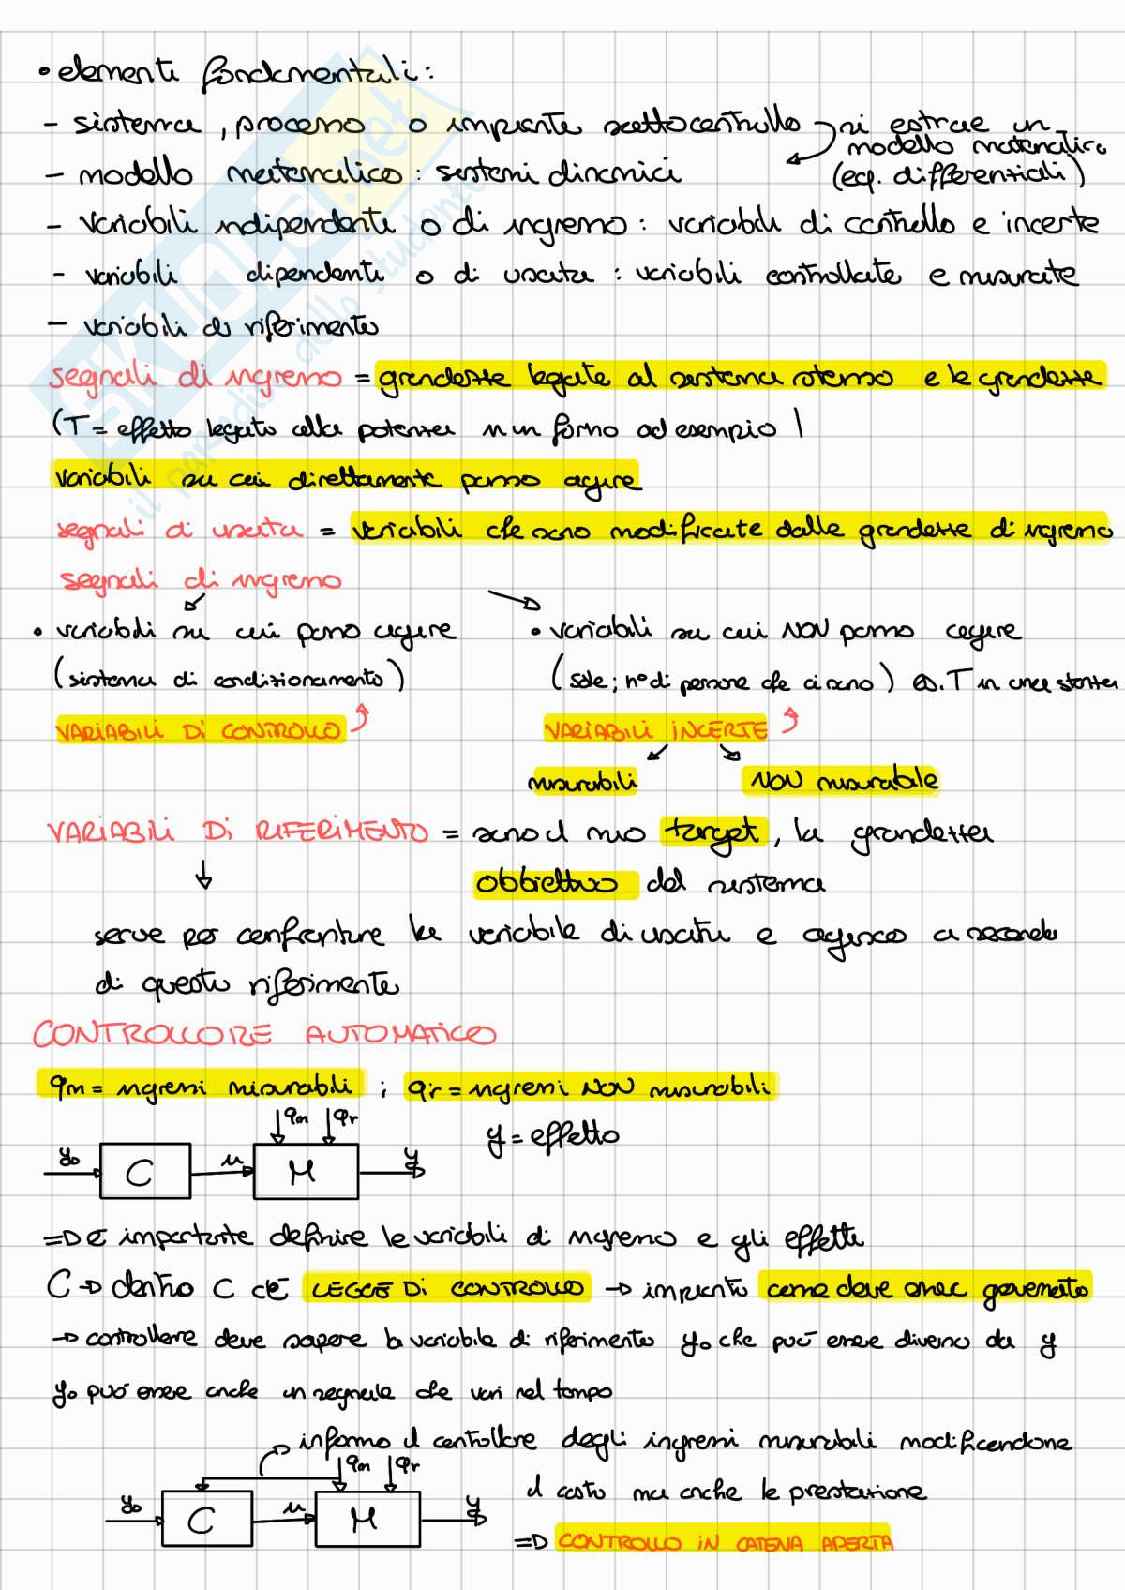 • elementi fondamentali:
- sistema, processo o impianto sottocontrollo → si estrae un
modello matematico
- modello matematico: sistemi dinamici (eq. differenziali)
- variabili indipendenti o di ingresso: variabili di controllo e incerte
- variabili dipendenti o di uscita: variabili controllate e misurate
- variabili di riferimento
segnali di ingresso = grandezze legate al sistema stesso e le grandezze
(T = effetto legato alla potenza in un forno ad esempio)
variabili su cui direttamente posso agire
segnali di uscita = variabili che sono modificate dalle grandezze di ingresso
segnali di ingresso
• variabili su cui posso agire • variabili su cui NON posso agire
(sistema di condizionamento) (sole; n° di persone che ci sono) es. T in una stanza
VARIABILI DI CONTROLLO VARIABILI INCERTE
misurabili NON misurabile
VARIABILI DI RIFERIMENTO = sono il mio target, la grandezza
obbiettivo del sistema
serve per confrontare la variabile di uscita e agisco a seconda
di questo riferimento
CONTROLLORE AUTOMATICO
qm = ingressi misurabili ; qr = ingressi NON misurabili
qm qr
y = effetto
yo C u M y
=D È importante definire le variabili di ingresso e gli effetti
C → dentro C c'è LEGGE DI CONTROLLO → impianto come deve esser governato
→ controllore deve sapere la variabile di riferimento yo che può essere diverso da y
yo può essere anche un segnale che vari nel tempo
→ informo il controllore degli ingressi misurabili modificandone
qm qr
il costo ma anche le prestazione
yo C u M y
=D CONTROLLO IN CATENA APERTA
SKUOLA.net
il paradiso dello studente